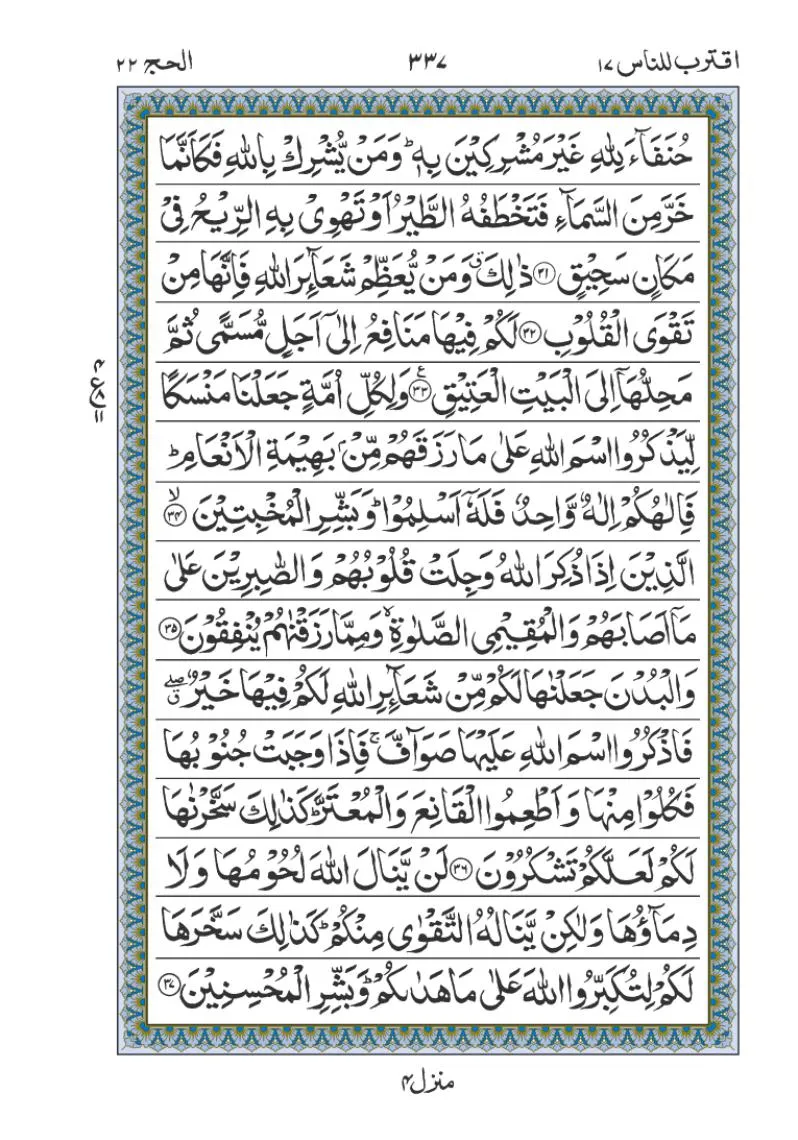 اقترب للناس ١٧
٣٣٧
الحج ٢٢
حُنَفَآءَ لِلّٰهِ غَيْرَ مُشْرِكِيْنَ بِهٖ ؕ وَمَنْ يُّشْرِكْ بِاللّٰهِ فَكَاَنَّمَا
خَرَّ مِنَ السَّمَآءِ فَتَخْطَفُهُ الطَّيْرُ اَوْ تَهْوِىْ بِهِ الرِّيْحُ فِىْ
مَكَانٍ سَحِيْقٍ ﴿۳۱﴾ ذٰلِكَ ۗ وَمَنْ يُّعَظِّمْ شَعَآئِرَ اللّٰهِ فَاِنَّهَا مِنْ
تَقْوَى الْقُلُوْبِ ﴿۳۲﴾ لَكُمْ فِيْهَا مَنَافِعُ اِلٰٓى اَجَلٍ مُّسَمًّى ثُمَّ
مَحِلُّهَاۤ اِلَى الْبَيْتِ الْعَتِيْقِ ﴿۳۳﴾ ع وَلِكُلِّ اُمَّةٍ جَعَلْنَا مَنْسَكًا
لِّيَذْكُرُوا اسْمَ اللّٰهِ عَلٰى مَا رَزَقَهُمْ مِّنْۢ بَهِيْمَةِ الْاَنْعَامِ ؕ
فَاِلٰهُكُمْ اِلٰهٌ وَّاحِدٌ فَلَهٗۤ اَسْلِمُوْا ؕ وَبَشِّرِ الْمُخْبِتِيْنَ ۙ ﴿۳۴﴾
الَّذِيْنَ اِذَا ذُكِرَ اللّٰهُ وَجِلَتْ قُلُوْبُهُمْ وَالصّٰبِرِيْنَ عَلٰى
مَاۤ اَصَابَهُمْ وَالْمُقِيْمِى الصَّلٰوةِ ۙ وَمِمَّا رَزَقْنٰهُمْ يُنْفِقُوْنَ ﴿۳۵﴾
وَالْبُدْنَ جَعَلْنٰهَا لَكُمْ مِّنْ شَعَآئِرِ اللّٰهِ لَكُمْ فِيْهَا خَيْرٌ ۖ ق
فَاذْكُرُوا اسْمَ اللّٰهِ عَلَيْهَا صَوَآفَّ ۚ فَاِذَا وَجَبَتْ جُنُوْبُهَا
فَكُلُوْا مِنْهَا وَاَطْعِمُوا الْقَانِعَ وَالْمُعْتَرَّ ؕ كَذٰلِكَ سَخَّرْنٰهَا
لَكُمْ لَعَلَّكُمْ تَشْكُرُوْنَ ﴿۳۶﴾ لَنْ يَّنَالَ اللّٰهَ لُحُوْمُهَا وَلَا
دِمَآؤُهَا وَلٰكِنْ يَّنَالُهُ التَّقْوٰى مِنْكُمْ ؕ كَذٰلِكَ سَخَّرَهَا
لَكُمْ لِتُكَبِّرُوا اللّٰهَ عَلٰى مَا هَدٰٮكُمْ ؕ وَبَشِّرِ الْمُحْسِنِيْنَ ﴿۳۷﴾
منزل ۴